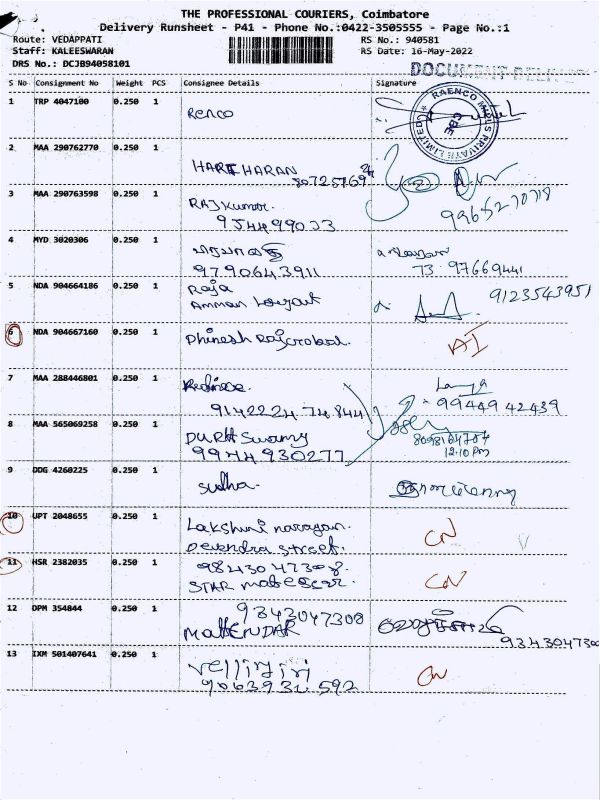 THE PROFESSIONAL COURIERS, Coimbatore
Delivery Runsheet - P41 - Phone No.:0422-3505555 - Page No.:1
Route: VEDAPPATI RS No.: 940581
Staff: KALEESWARAN RS Date: 16-May-2022
DRS No.: DCJB94058101
S No Consignment No Weight PCS Consignee Details Signature
DOCUMENT
1 TRP 4047100 0.250 1 Renco
RAENCO MILLS PRIVATE LIMITED
383
2 MAA 290762770 0.250 1
HARI HARAN
3 MAA 290763598 0.250 1 RAJ Kumar.
9965270718
4 MYD 3020306 0.250 1
9790643911 73 97669441
5 NDA 904664186 0.250 1 Raja 9123543951
Amman Layout
6 NDA 904667160 0.250 1 Dhinesh AI
7 MAA 288446801 0.250 1
9142224 74 844 99449 42439
8 MAA 565069258 0.250 1 DURAI Swamy
9944 930277 12.10 Pm
9 DDG 4260225 0.250 1 Sudha.
10 UPT 2048655 0.250 1 Lakshmi narayan. CN
Devendra street.
11 HSR 2382035 0.250 1 9843047308. CN
STAR
12 OPM 354844 0.250 1 9343047308
MAHENDAR
13 IXM 501407641 0.250 1 Vellingiri CN
9063931 592